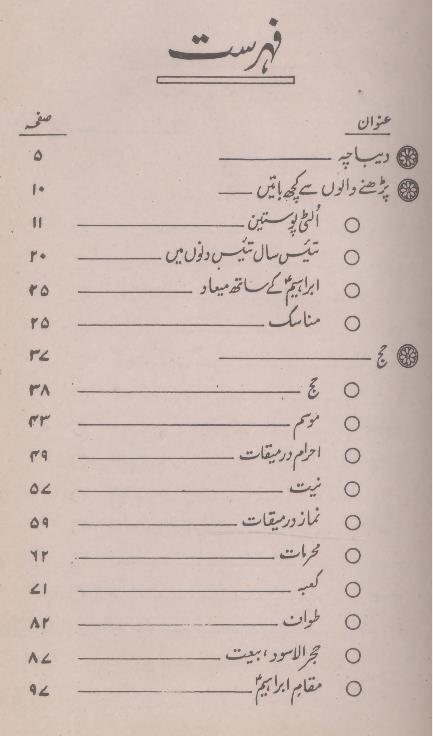 فہرست
عنوان صفحہ
دیباچہ ۵
پڑھنے والوں سے کچھ باتیں ۱۰
اُلٹی پوستین ۱۱
تئیس سال تئیس دنوں میں ۲۰
ابراہیمؑ کے ساتھ میعاد ۲۵
مناسک ۲۵
حج ۳۷
حج ۳۸
موسم ۴۳
احرام در میقات ۴۹
نیت ۵۷
نماز در میقات ۵۹
محرمات ۶۲
کعبہ ۷۱
طواف ۸۲
حجر الاسود، بیعت ۸۷
مقامِ ابراہیمؑ ۹۷